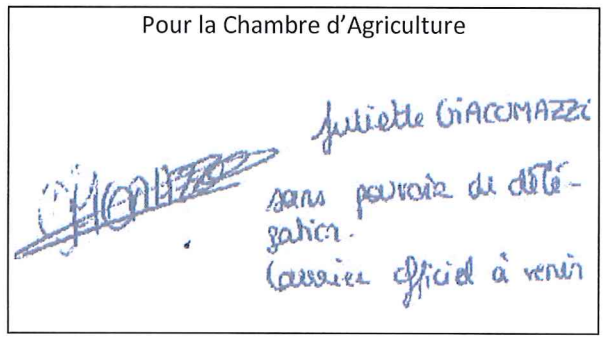 Pour la Chambre d'Agriculture
Juliette GIACOMAZZI
sans pouvoir de délé-
gation.
Courrier officiel à venir